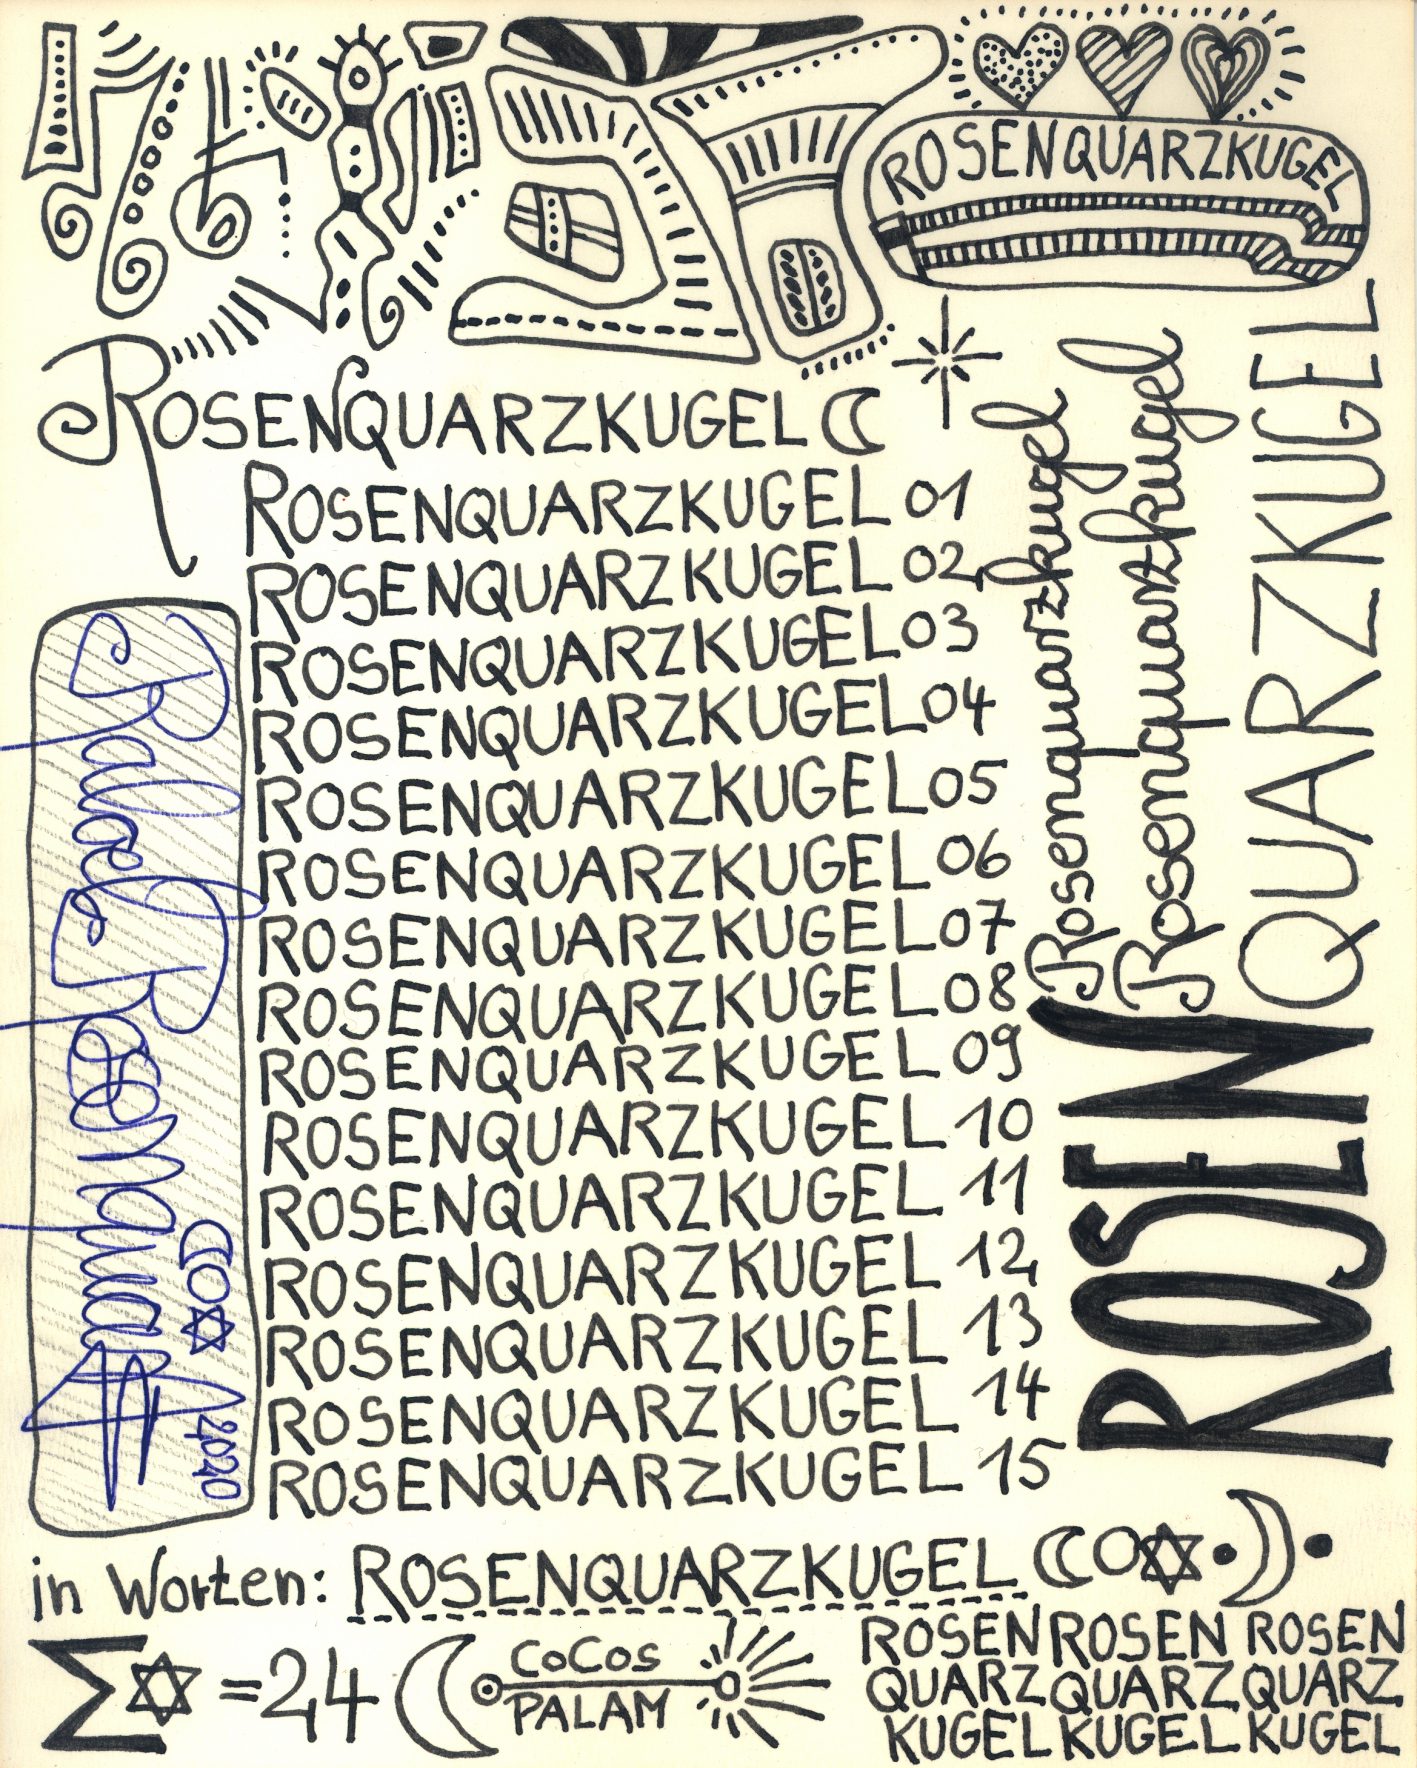 ROSENQUARZKUGEL
ROSENQUARZKUGEL
ROSENQUARZKUGEL 01
ROSENQUARZKUGEL 02
ROSENQUARZKUGEL 03
ROSENQUARZKUGEL 04
ROSENQUARZKUGEL 05
ROSENQUARZKUGEL 06
ROSENQUARZKUGEL 07
ROSENQUARZKUGEL 08
ROSENQUARZKUGEL 09
ROSENQUARZKUGEL 10
ROSENQUARZKUGEL 11
ROSENQUARZKUGEL 12
ROSENQUARZKUGEL 13
ROSENQUARZKUGEL 14
ROSENQUARZKUGEL 15
Rosenquarzkugel
Rosenquarzkugel
ROSENQUARZKUGEL
2020
in Worten: ROSENQUARZKUGEL
Σ✡=24
CoCos
PALAM
ROSEN ROSEN ROSEN
QUARZ QUARZ QUARZ
KUGEL KUGEL KUGEL